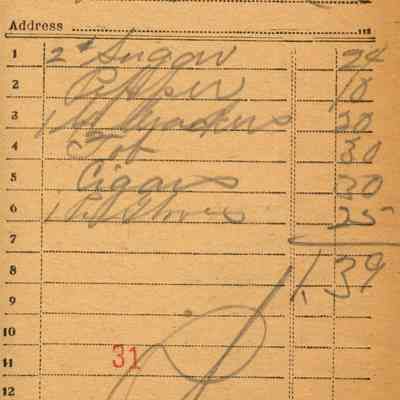 Address
1 2# Sugar 24
2 Pepper 10
3 1 lb Crackers 20
4 Tob 30
5 Cigars 30
6 1 Pr Gloves 25
7
8 1.39
9
10
11 31
12